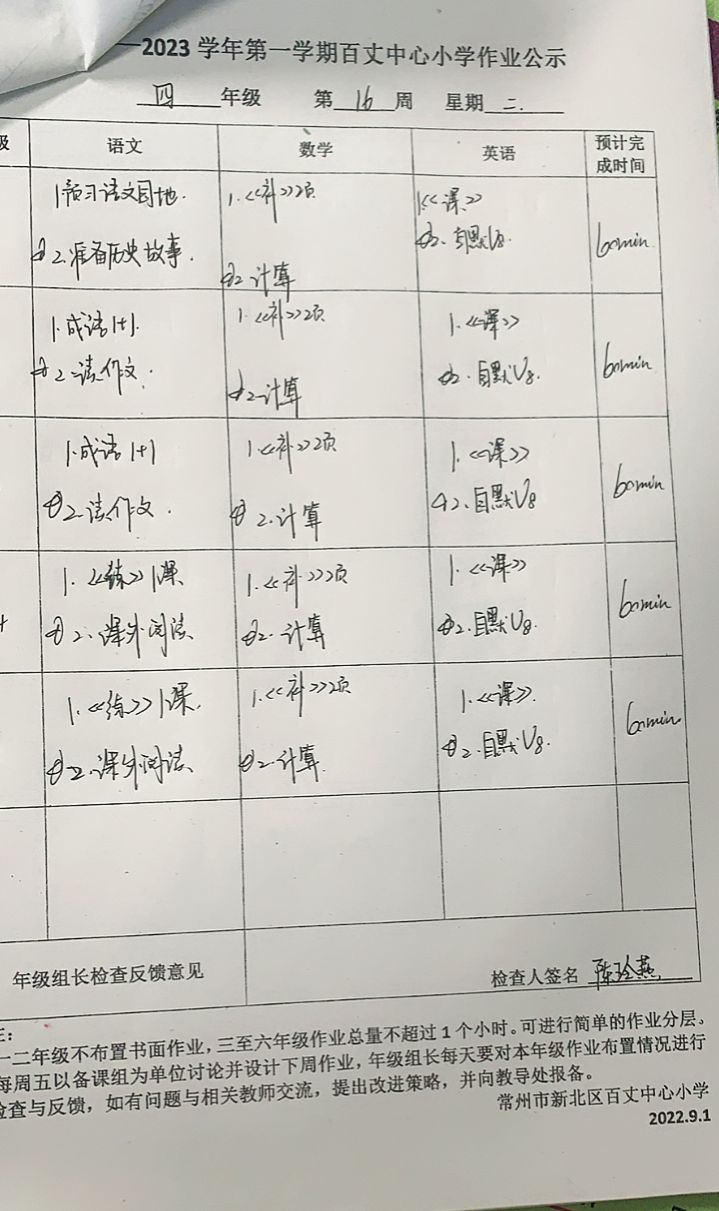 —2023 学年第一学期百丈中心小学作业公示
四 年级 第 16 周 星期 二
级 语文 数学 英语 预计完成时间
1 预习语文园地. 1.<<补>>2页 1<<课>>
2.准备历史故事. 2 计算 2. 自默U8. 60min
1.成语1+1. 1.<<补>>2页 1.<<课>>
2.读作文. 2 计算 2.自默U8. 60min
1.成语1+1 1.<<补>>2页 1.<<课>>
2.读作文. 2.计算 2.自默U8 60min
1.<<练>>1课. 1.<<补>>2页 1.<<课>>
2.课外阅读. 2.计算 2.自默U8. 60min
1.<<练>>1课. 1.<<补>>2页 1.<<课>>.
2.课外阅读. 2.计算. 2.自默U8. 60min
年级组长检查反馈意见
检查人签名 陈玲燕
注:
一二年级不布置书面作业，三至六年级作业总量不超过 1 个小时。可进行简单的作业分层。
每周五以备课组为单位讨论并设计下周作业，年级组长每天要对本年级作业布置情况进行
检查与反馈，如有问题与相关教师交流，提出改进策略，并向教导处报备。
常州市新北区百丈中心小学
2022.9.1